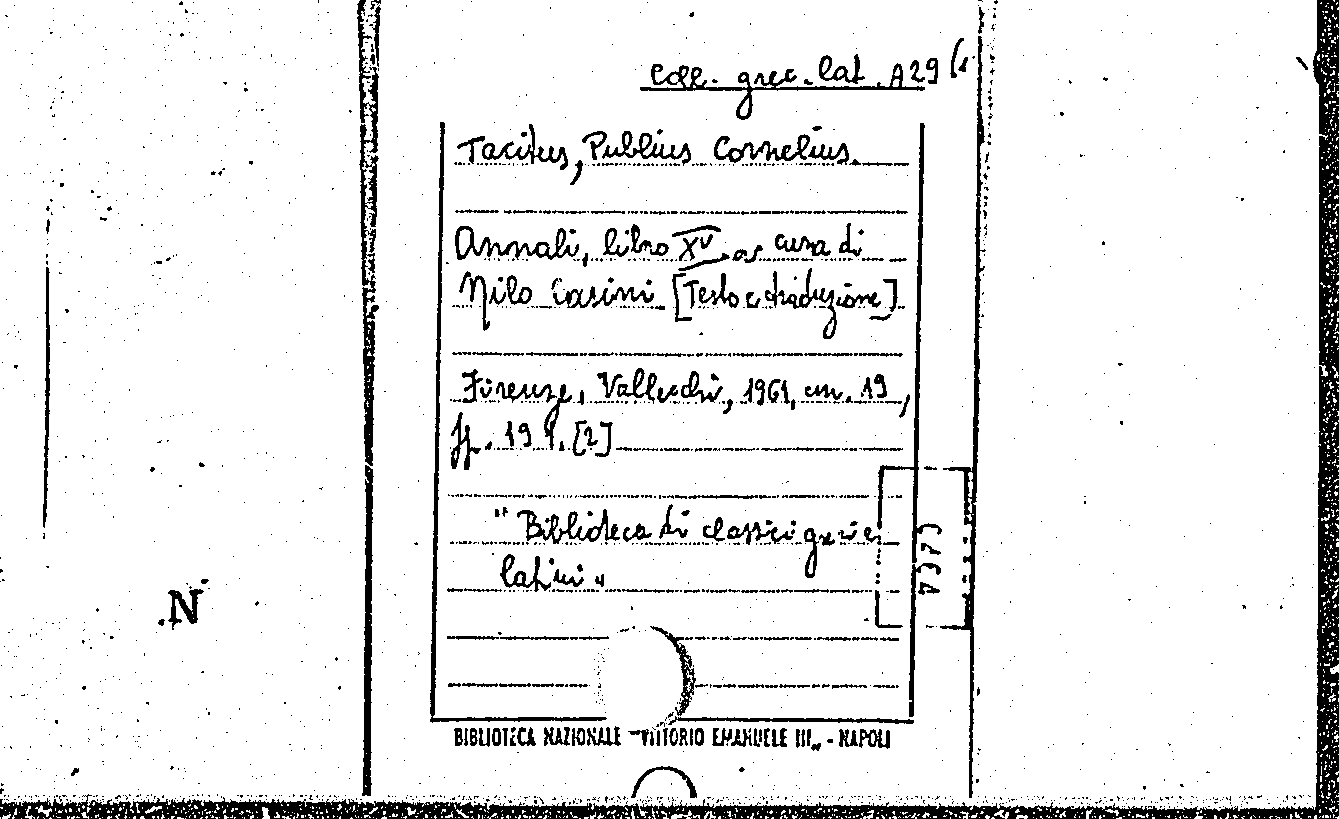 Coll. grec. lat. A 29 (1
Tacitus, Publius Cornelius.
Annali, libro XV, a cura di
Nilo Casini [Testo e traduzione]
Firenze, Vallecchi, 1961, cm. 19,
pp. 191. [2]
"Biblioteca di classici greci e
latini"
.N
BIBLIOTECA NAZIONALE "VITTORIO EMANUELE III„ - NAPOLI